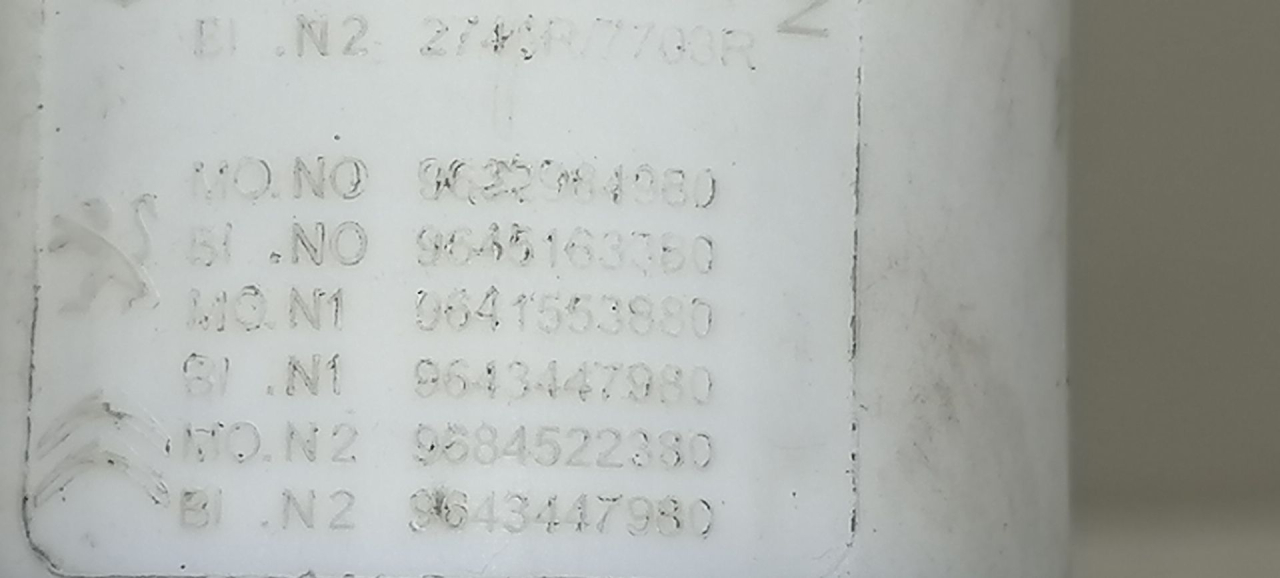 BI .N2 2746R/7700R
MO.NO 9632984980
BI .NO 9645163380
MO.N1 9641553880
BI .N1 9643447980
MO.N2 9684522380
BI .N2 9643447980